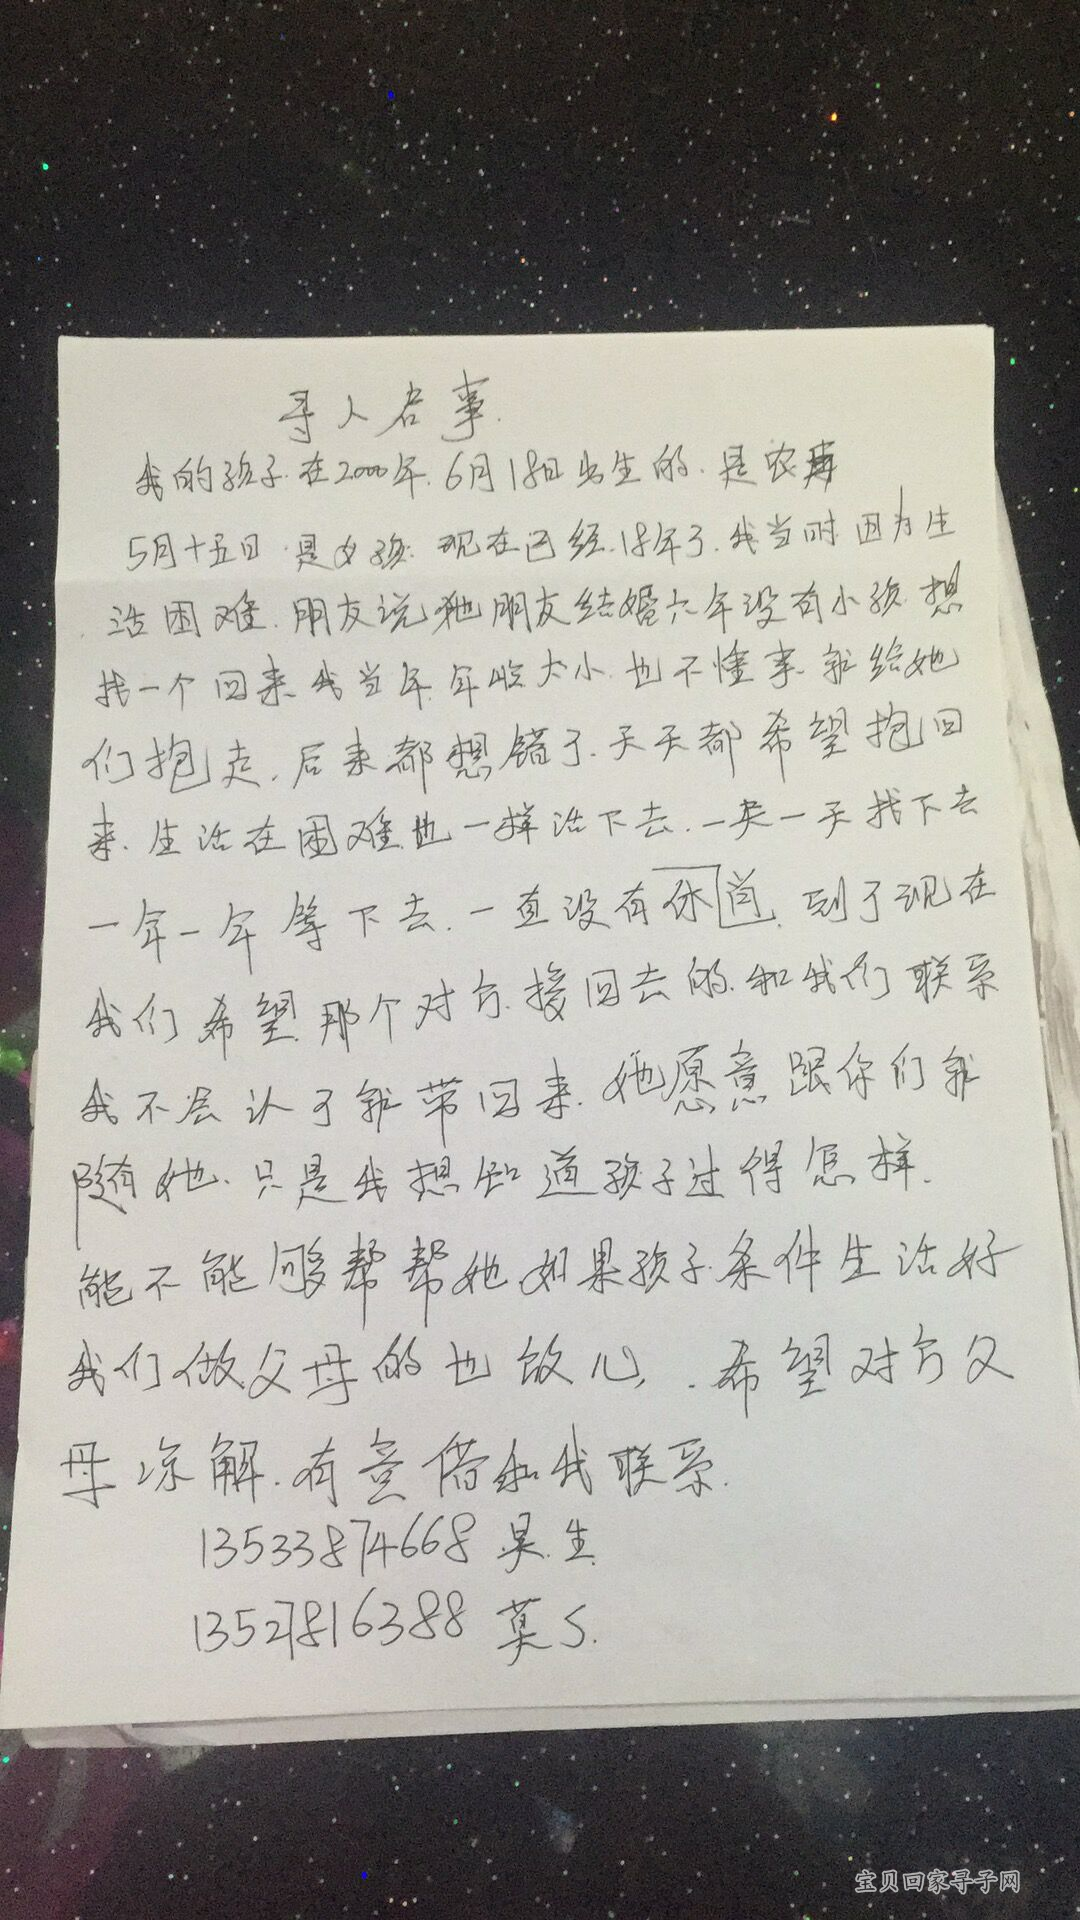 寻人启事.
我的孩子.在2000年.6月18日出生的.是农
5月十五日.是女孩.现在已经.18年了.我当时因为生
活困难.朋友说她朋友结婚六年没有小孩.想
找一个回来.我当年.年龄太小.也不懂事.就给她
们抱走.后来都想错了.天天都希望抱回
来.生活在困难也一样活下去.一天一天找下去
一年一年等下去.一直没有休.到了现在
我们希望.那个对方.接回去的.和我们联系
我不会认了就带回来.她愿意跟你们就
随她.只是我想知道孩子过得怎样.
能不能够帮帮她.如果孩子.条件生活好
我们做父母的也放心,.希望对方父
母谅解.有意偖和我联系.
13533874668 吴.生.
13527816388 莫S.
宝贝回家寻子网